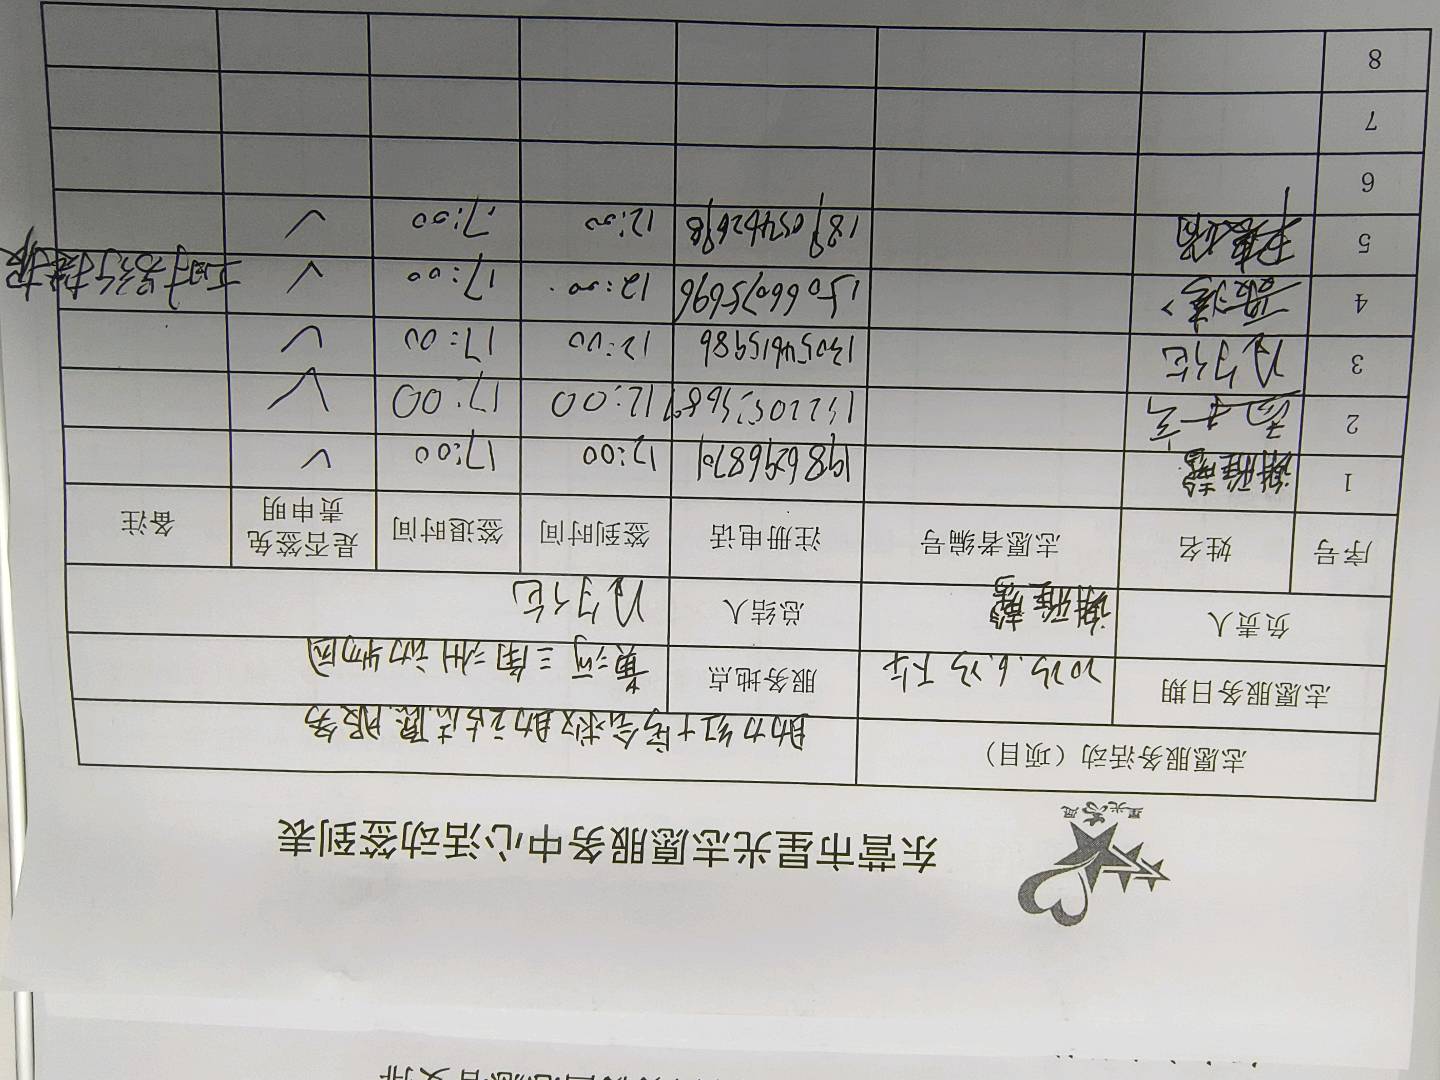 东营市星光志愿服务中心活动签到表
星光志愿
志愿服务活动（项目） 助力红十字会救助站志愿服务
志愿服务日期 2023.6.23 下午 服务地点 黄河三角洲动物园
负责人 谢雅馨 总结人
序号 姓名 志愿者编号 注册电话 签到时间 签退时间 是否签免责申明 备注
1 谢雅馨 19862968701 12:00 17:00 ✓
2 12:00 17:00 ✓
3 13054615986 12:00 17:00 ✓
4 15066075696 12:00 17:00 ✓
5 18905462698 12:00 17:00 ✓
6
7
8